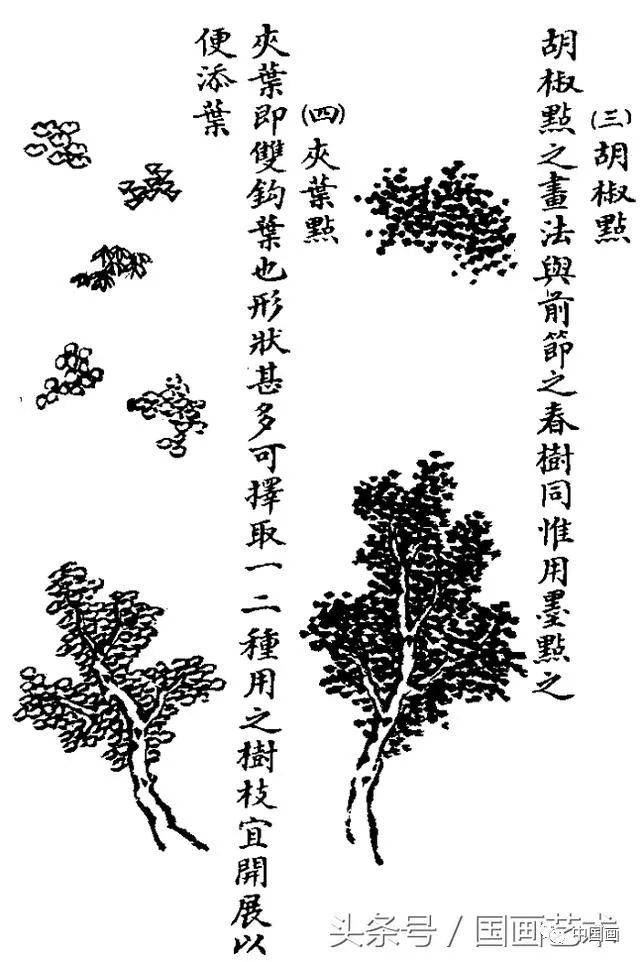 ㈢胡椒點
胡椒點之畫法與前節之春樹同惟用墨點之
㈣夾葉點
夾葉即雙鈎葉也形狀甚多可擇取一二種用之樹枝宜開展以
便添葉
头条号／国画艺术
中国画